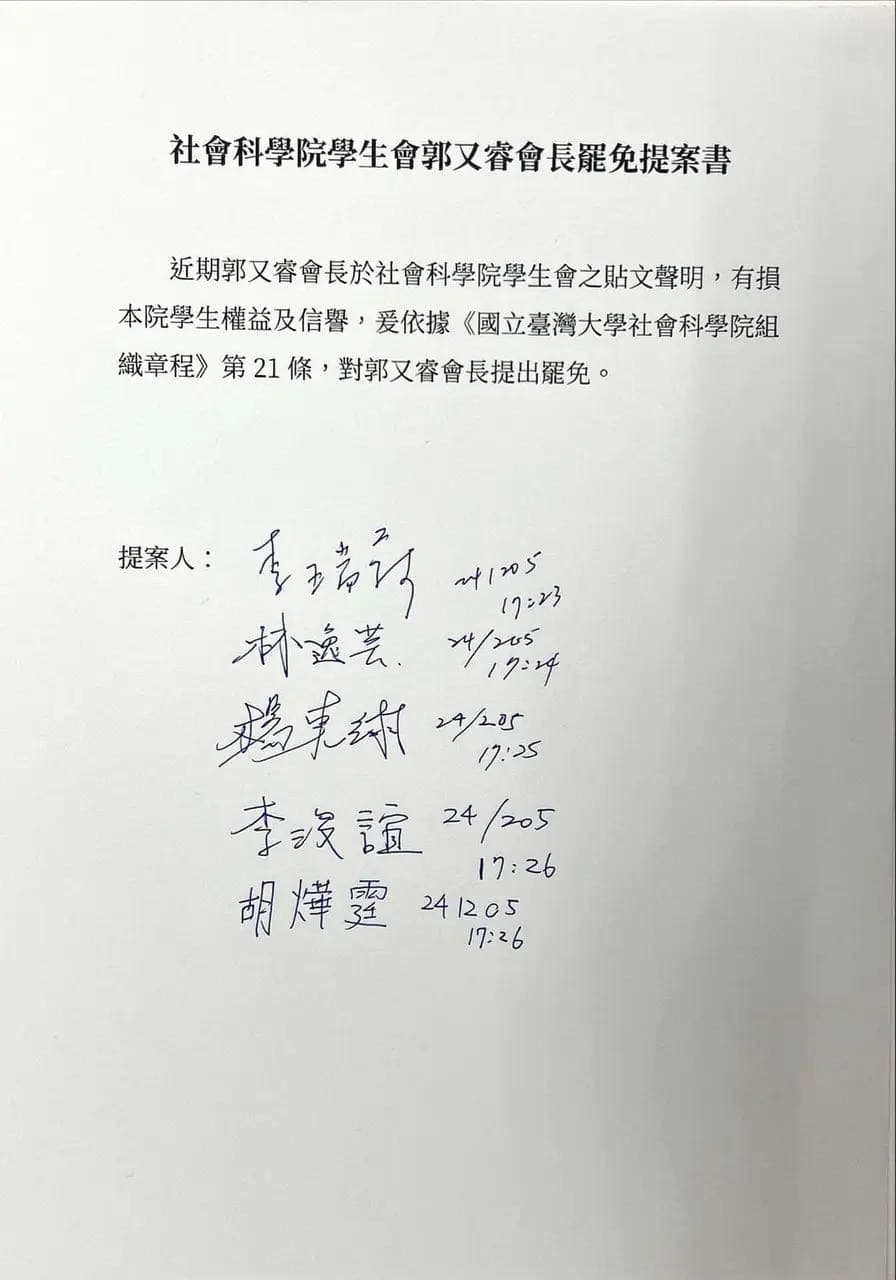 社會科學院學生會郭又睿會長罷免提案書
近期郭又睿會長於社會科學院學生會之貼文聲明，有損
本院學生權益及信譽，爰依據《國立臺灣大學社會科學院組
織章程》第 21 條，對郭又睿會長提出罷免。
提案人：
李
241205
17:23
林逸芸
241205
17:24
楊東
241205
17:25
李浚誼
241205
17:26
胡燁霆
241205
17:26